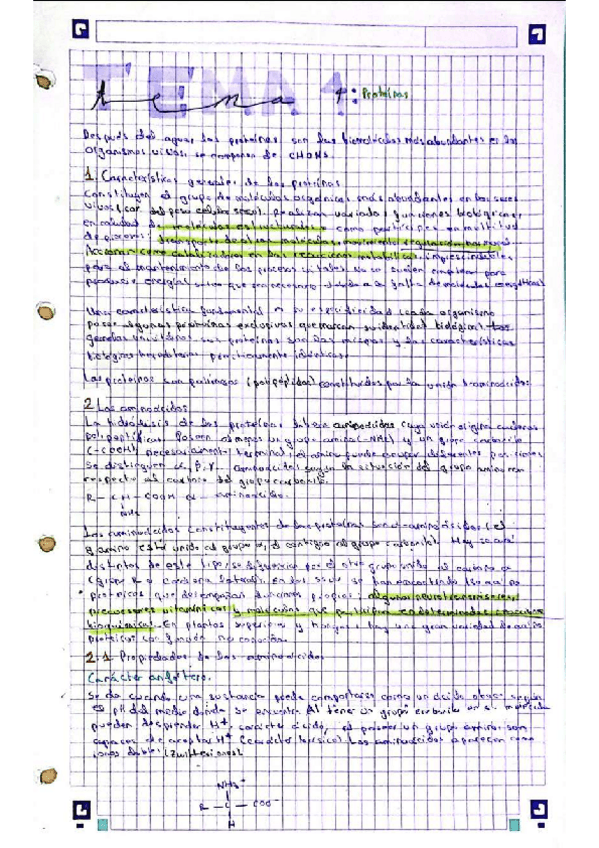 TEMA 4
tema 4: Proteínas
Después del agua, las proteínas son las biomoléculas más abundantes en los
organismos vivos, se componen de CHONS.
1. Características generales de las proteínas
Constituyen el grupo de moléculas orgánicas más abundantes en los seres
vivos ( del peso celular seco). Realizan variadas funciones biológicas,
en calidad de moléculas estructurales como partícipes en multitud
de procesos: transporte de otras moléculas, regulación hormonal
Accionan como catalizadores en las reacciones metabólicas, imprescindibles
para el mantenimiento de los procesos vitales. No se suelen emplear para
producir energía, salvo que sea necesario debido a la falta de moléculas energéticas
Una característica fundamental es su especificidad (cada organismo
posee algunas proteínas exclusivas que marcan su identidad biológica). Los
gemelos univitelinos sus proteínas son las mismas y las características
biológicas hereditarias prácticamente idénticas.
Las proteínas son polímeros (polipéptidos) constituidos por la unión de aminoácidos
2. Los aminoácidos
La hidrólisis de las proteínas libera aminoácidos cuya unión origina cadenas
polipeptídicas. Poseen al menos un grupo amino (-NH2) y un grupo carboxilo
(-COOH), necesariamente terminal, el amino puede ocupar diferentes posiciones.
Se distinguen α, β, γ, aminoácidos según la situación del grupo amino con
respecto al carbono del grupo carboxilo.
R - CH - COOH α - aminoácidos.
NH2
Los aminoácidos constituyentes de las proteínas son α-aminoácidos (el
g. amino está unido al grupo α, el contiguo al grupo carboxilo). Hay 20 aa
distintos de este tipo, se diferencian por el otro grupo unido al carbono α
(grupo R o cadena lateral).
algunos neurotransmisores,
precursores vitamínicos y moléculas que participan en determinadas reacciones
bioquímicas. En plantas superiores y hongos, hay una gran variedad de
proteicos con función no conocida.
2.1 Propiedades de los aminoácidos
Carácter anfótero.
Se da cuando una sustancia puede comportarse como un ácido o base, según
el pH del medio donde se encuentra. Al tener un grupo carboxilo en su molécula
pueden desprender H+, carácter ácido, al presentar un grupo amino son
capaces de aceptar H+ (carácter básico). Los aminoácidos aparecen como
iones dobles (zwitteriones)
NH3+
R - C - COO-
H